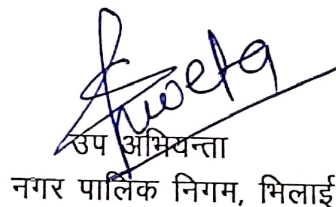 Shweta
उप अभियन्ता
नगर पालिक निगम, भिलाई